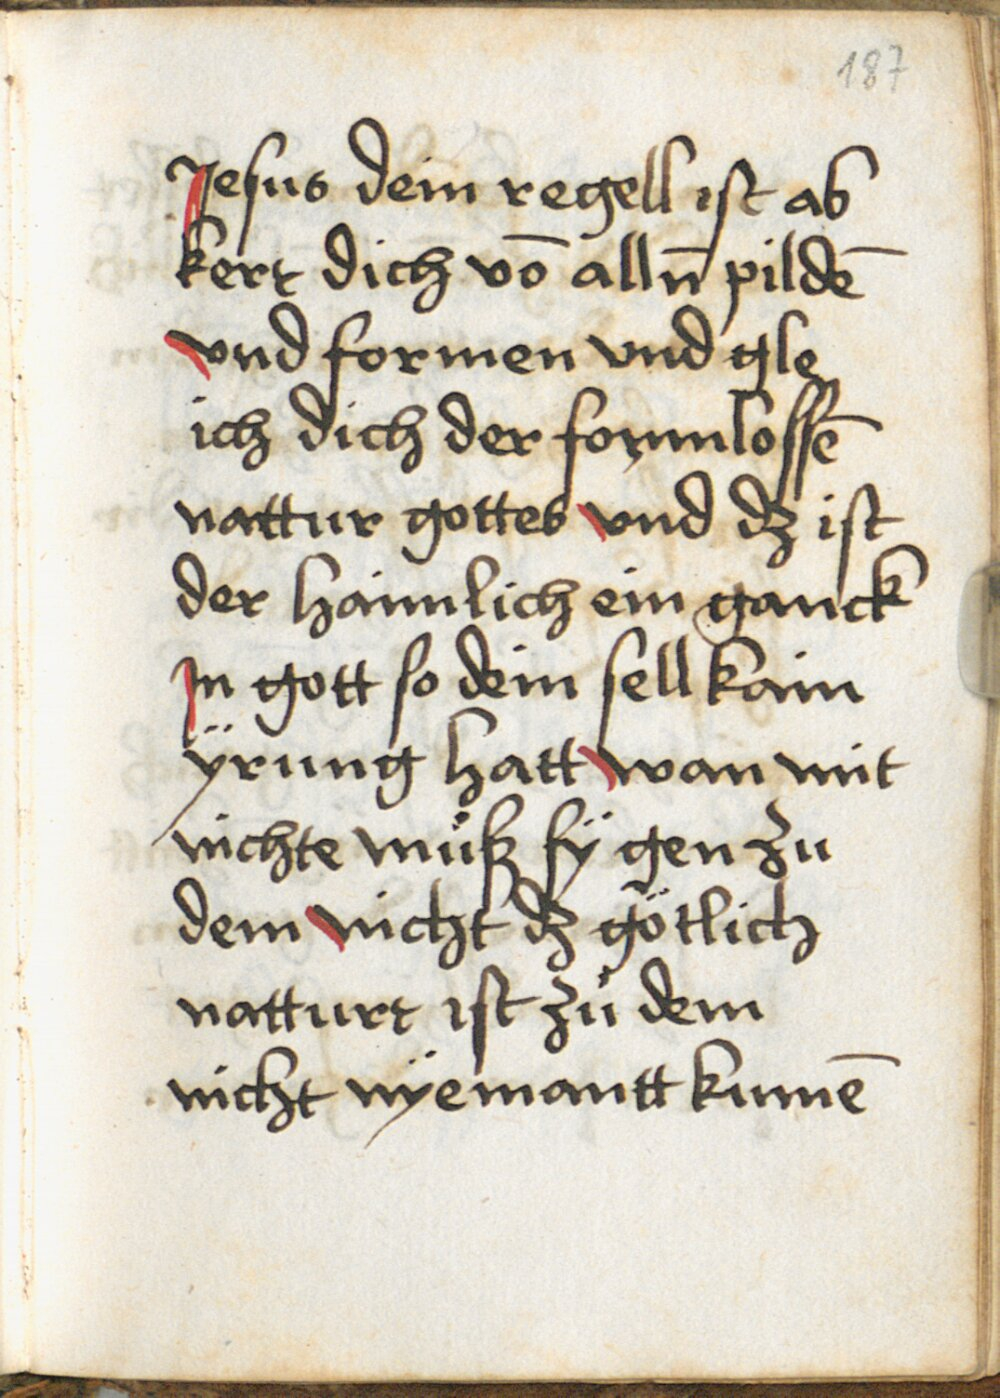 187
Jesus dein regell ist ab
kert dich vō alln̄ pildē
vnd formen vnd gle
ich dich der formlossē
nattur gottes vnd dz ist
der haimlich ein ganck
In gott so dein sell kain
ÿrung hatt wan mit
nichte muͦß fÿ gen zu
dem nicht dz götlich
natturt ist zuͦ dem
nicht nÿemantt kumē